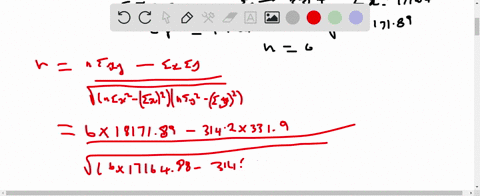 171.89
n = 6
r = nΣxy − ΣxΣy
√(nΣx²−(Σx)²)(nΣy²−(Σy)²)
= 6×18171.89 − 314.2×331.9
√(6×17164.88 − 314